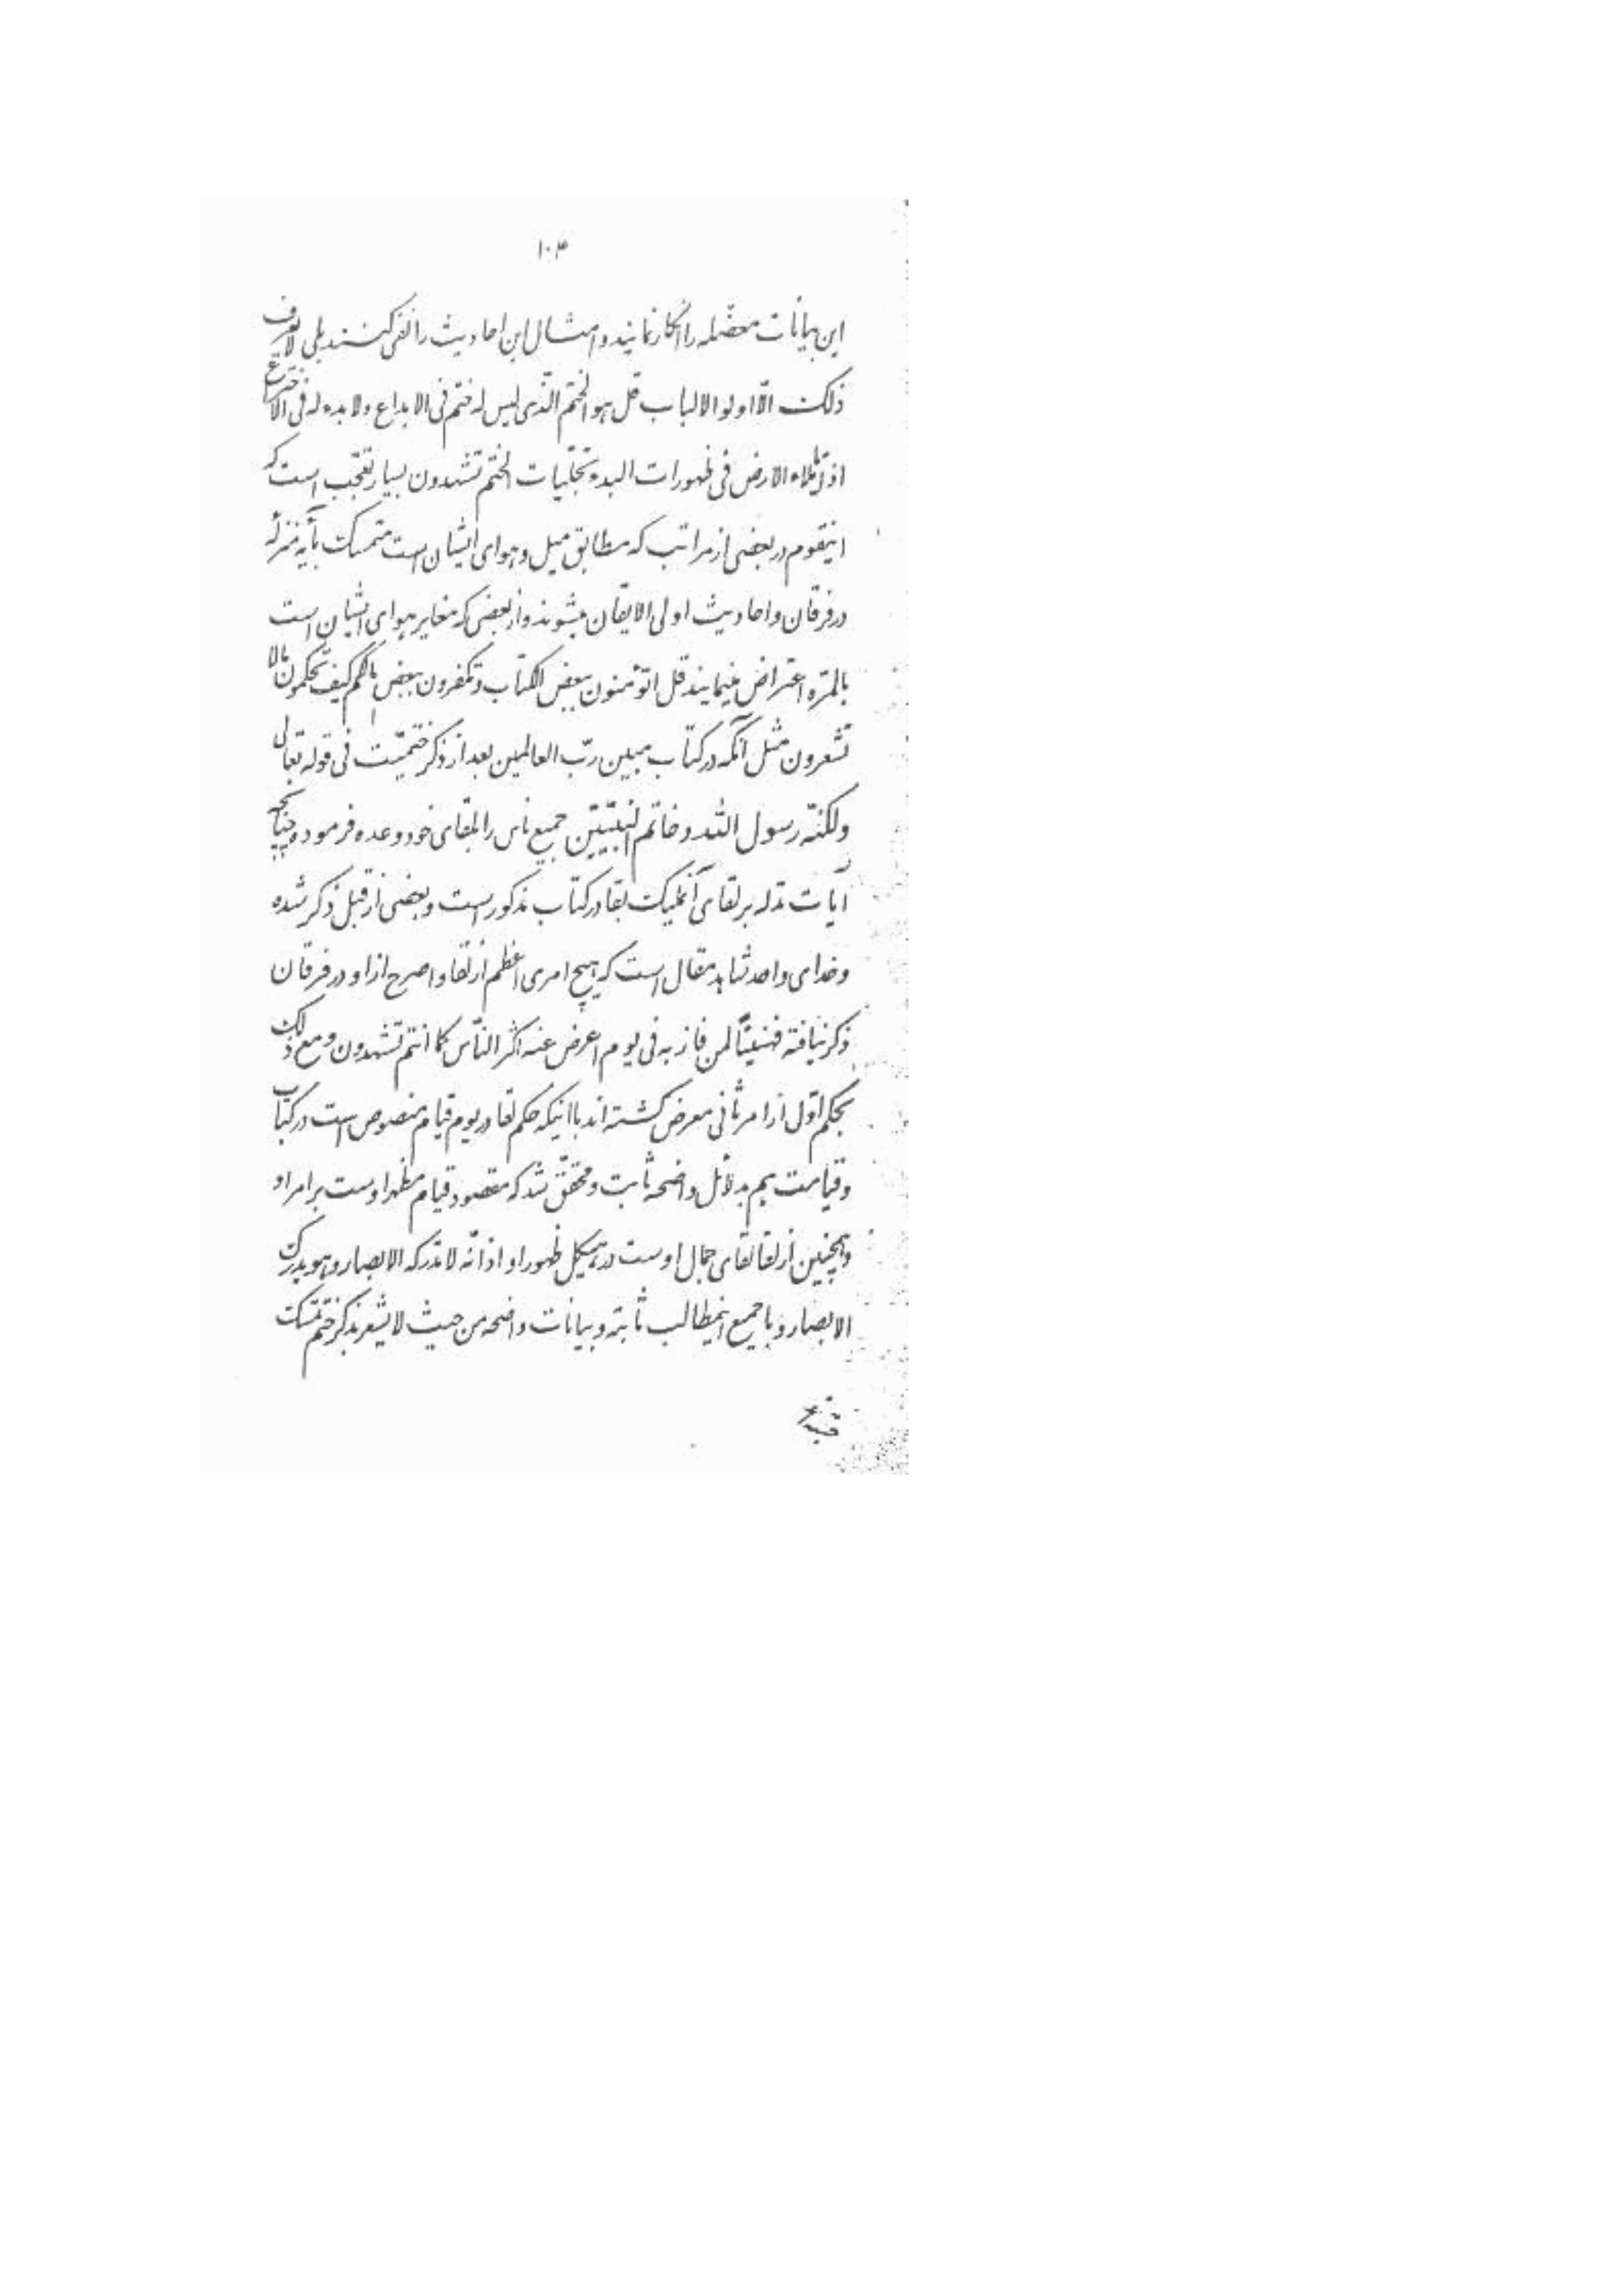 ۱۰۴
این بیانات مفصّله را انکار نمایند و امثال این احادیث را نفی کنند بلی لا یعرف
ذلک الّا اولو الالباب قل هو الختم الّذی لیس له ختم فی الابداع ولا بدء له فی الاختراع
اذاً یا ملاء الارض فی ظهورات البدء تجلّیات الختم تشهدون بسیار تعجّب است که
اینقوم در بعضی از مراتب که مطابق میل و هوای ایشان است متمسک بآیه منزله
در فرقان و احادیث اولی الایقان میشوند و از بعضی که مغایر هوای ایشان است
بالمرّه اعتراض مینمایند قل اتؤمنون ببعض الکتاب و تکفرون ببعض مالکم کیف تحکمون مالا
تشعرون مثل آنکه در کتاب مبین ربّ العالمین بعد از ذکر ختمیّت فی قوله تعالی
ولکنّه رسول اللّه و خاتم النّبیّین جمیع ناس را بلقای خود وعده فرموده چنانچه
آیات مدلّه بر لقای آن ملیک بقا در کتاب مذکور است و بعضی از قبل ذکر شده
و خدای واحد شاهد مقال است که هیچ امری اعظم از لقا و اصرح از او در فرقان
ذکر نیافته فهنیئاً لمن فاز به فی یوم اعرض عنه اکثر النّاس کما انتم تشهدون و مع ذلک
بحکم اوّل از امر ثانی معرض گشته‌اند با اینکه حکم لقا در یوم قیام منصوص است در کتاب
و قیامت هم بدلائل واضحه ثابت و محقّق شد که مقصود قیام مظهر اوست بر امر او
و همچنین از لقا لقای جمال اوست در هیکل ظهور او اذ انّه لا تدرکه الابصار و هو یدرک
الابصار و با جمیع اینمطالب ثابته و بیانات واضحه من حیث لا یشعر بذکر ختم تمسّک